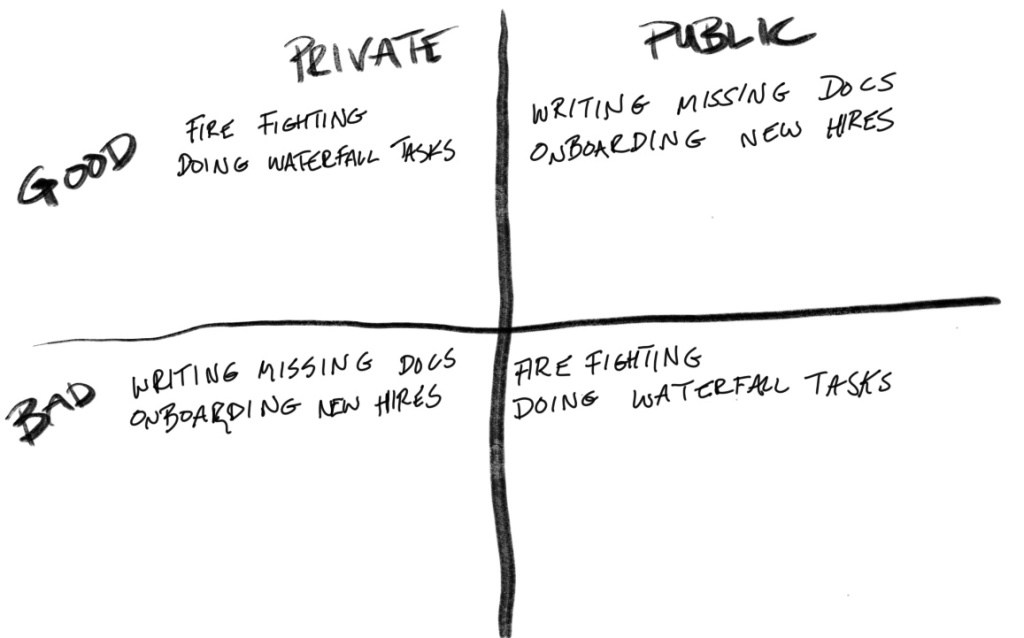 PRIVATE
PUBLIC
GOOD
FIRE FIGHTING
DOING WATERFALL TASKS
WRITING MISSING DOCS
ONBOARDING NEW HIRES
BAD
WRITING MISSING DOCS
ONBOARDING NEW HIRES
FIRE FIGHTING
DOING WATERFALL TASKS